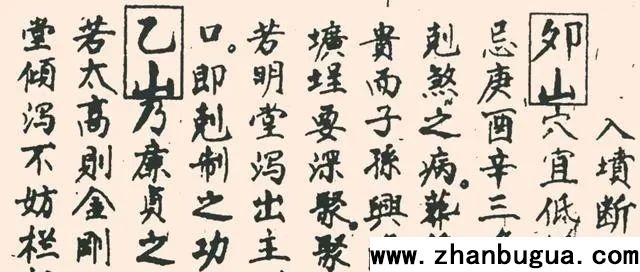 入墳断
卯山穴宜低
忌庚酉辛三
剋煞之病。葬
貴而子孫興
壙埕要深聚。聚
若明堂瀉出主
口。即剋制之功
乙山乃廉貞之
若太高則金剛
堂傾瀉不妨栏
www.zhanbugua.com